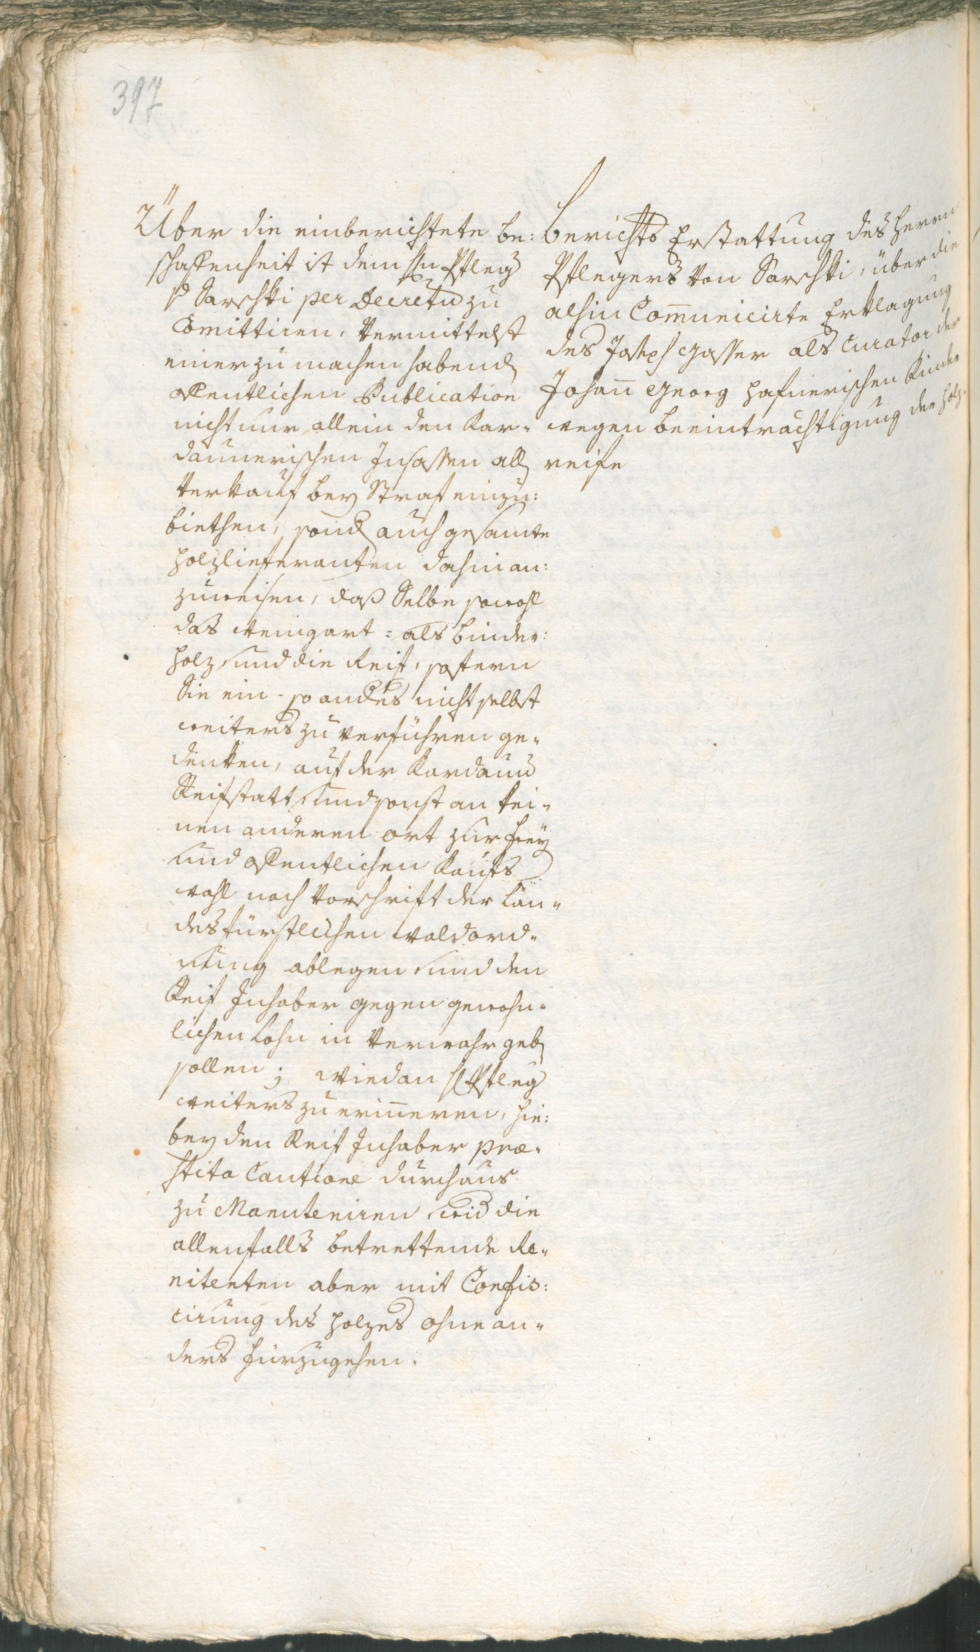 397
Über die einberichtete be:
schaffenheit ist dem Hn Pfleg
zu Sarchßi per Decretu zu
Comittiren, Vermittelst
einer zu machen habend
offentlichen Publication
nicht nur allein den Kar-
daunerischen Insassen all
Verkauf bey Straf einzu:
biethen, sond auch gesamte
holzlieferanten dahin an:
zuweisen, daß Selbe sowohl
das weingart- als binder:
holz, und die Reif, sofern
Sie ein- so anders nicht selbst
weiters zu verführen ge-
denken, auf der Kardaun
Reifstatt, und sonst an kei-
nen anderen ort zur frey
und offentlichen Kaufs
wahl nach Vorschrift der Lan-
desfürstlichen wald ord-
nung ablegen, und den
Reif Inhaber gegen gewohn-
lichen Lohn in Verwahr geb
sollen; wiedan H Pfleg
weiters zu erinneren, hie:
bey den Reif Inhaber præ-
stita Cautione durchaus
zu Manuteniren, und die
allenfalls betrettende Re-
nitenten aber mit Confis:
cirung des holzes ohne an-
ders fürzugehen.
berichts Erstattung des Herrn
Pflegers von Sarchßi, über die
alhin Comunicirte Erklagung
des Joseph gasser als Curator der
Johann Georg hafnerischen Kinder
wegen beeinträchtigung der holz-
reife